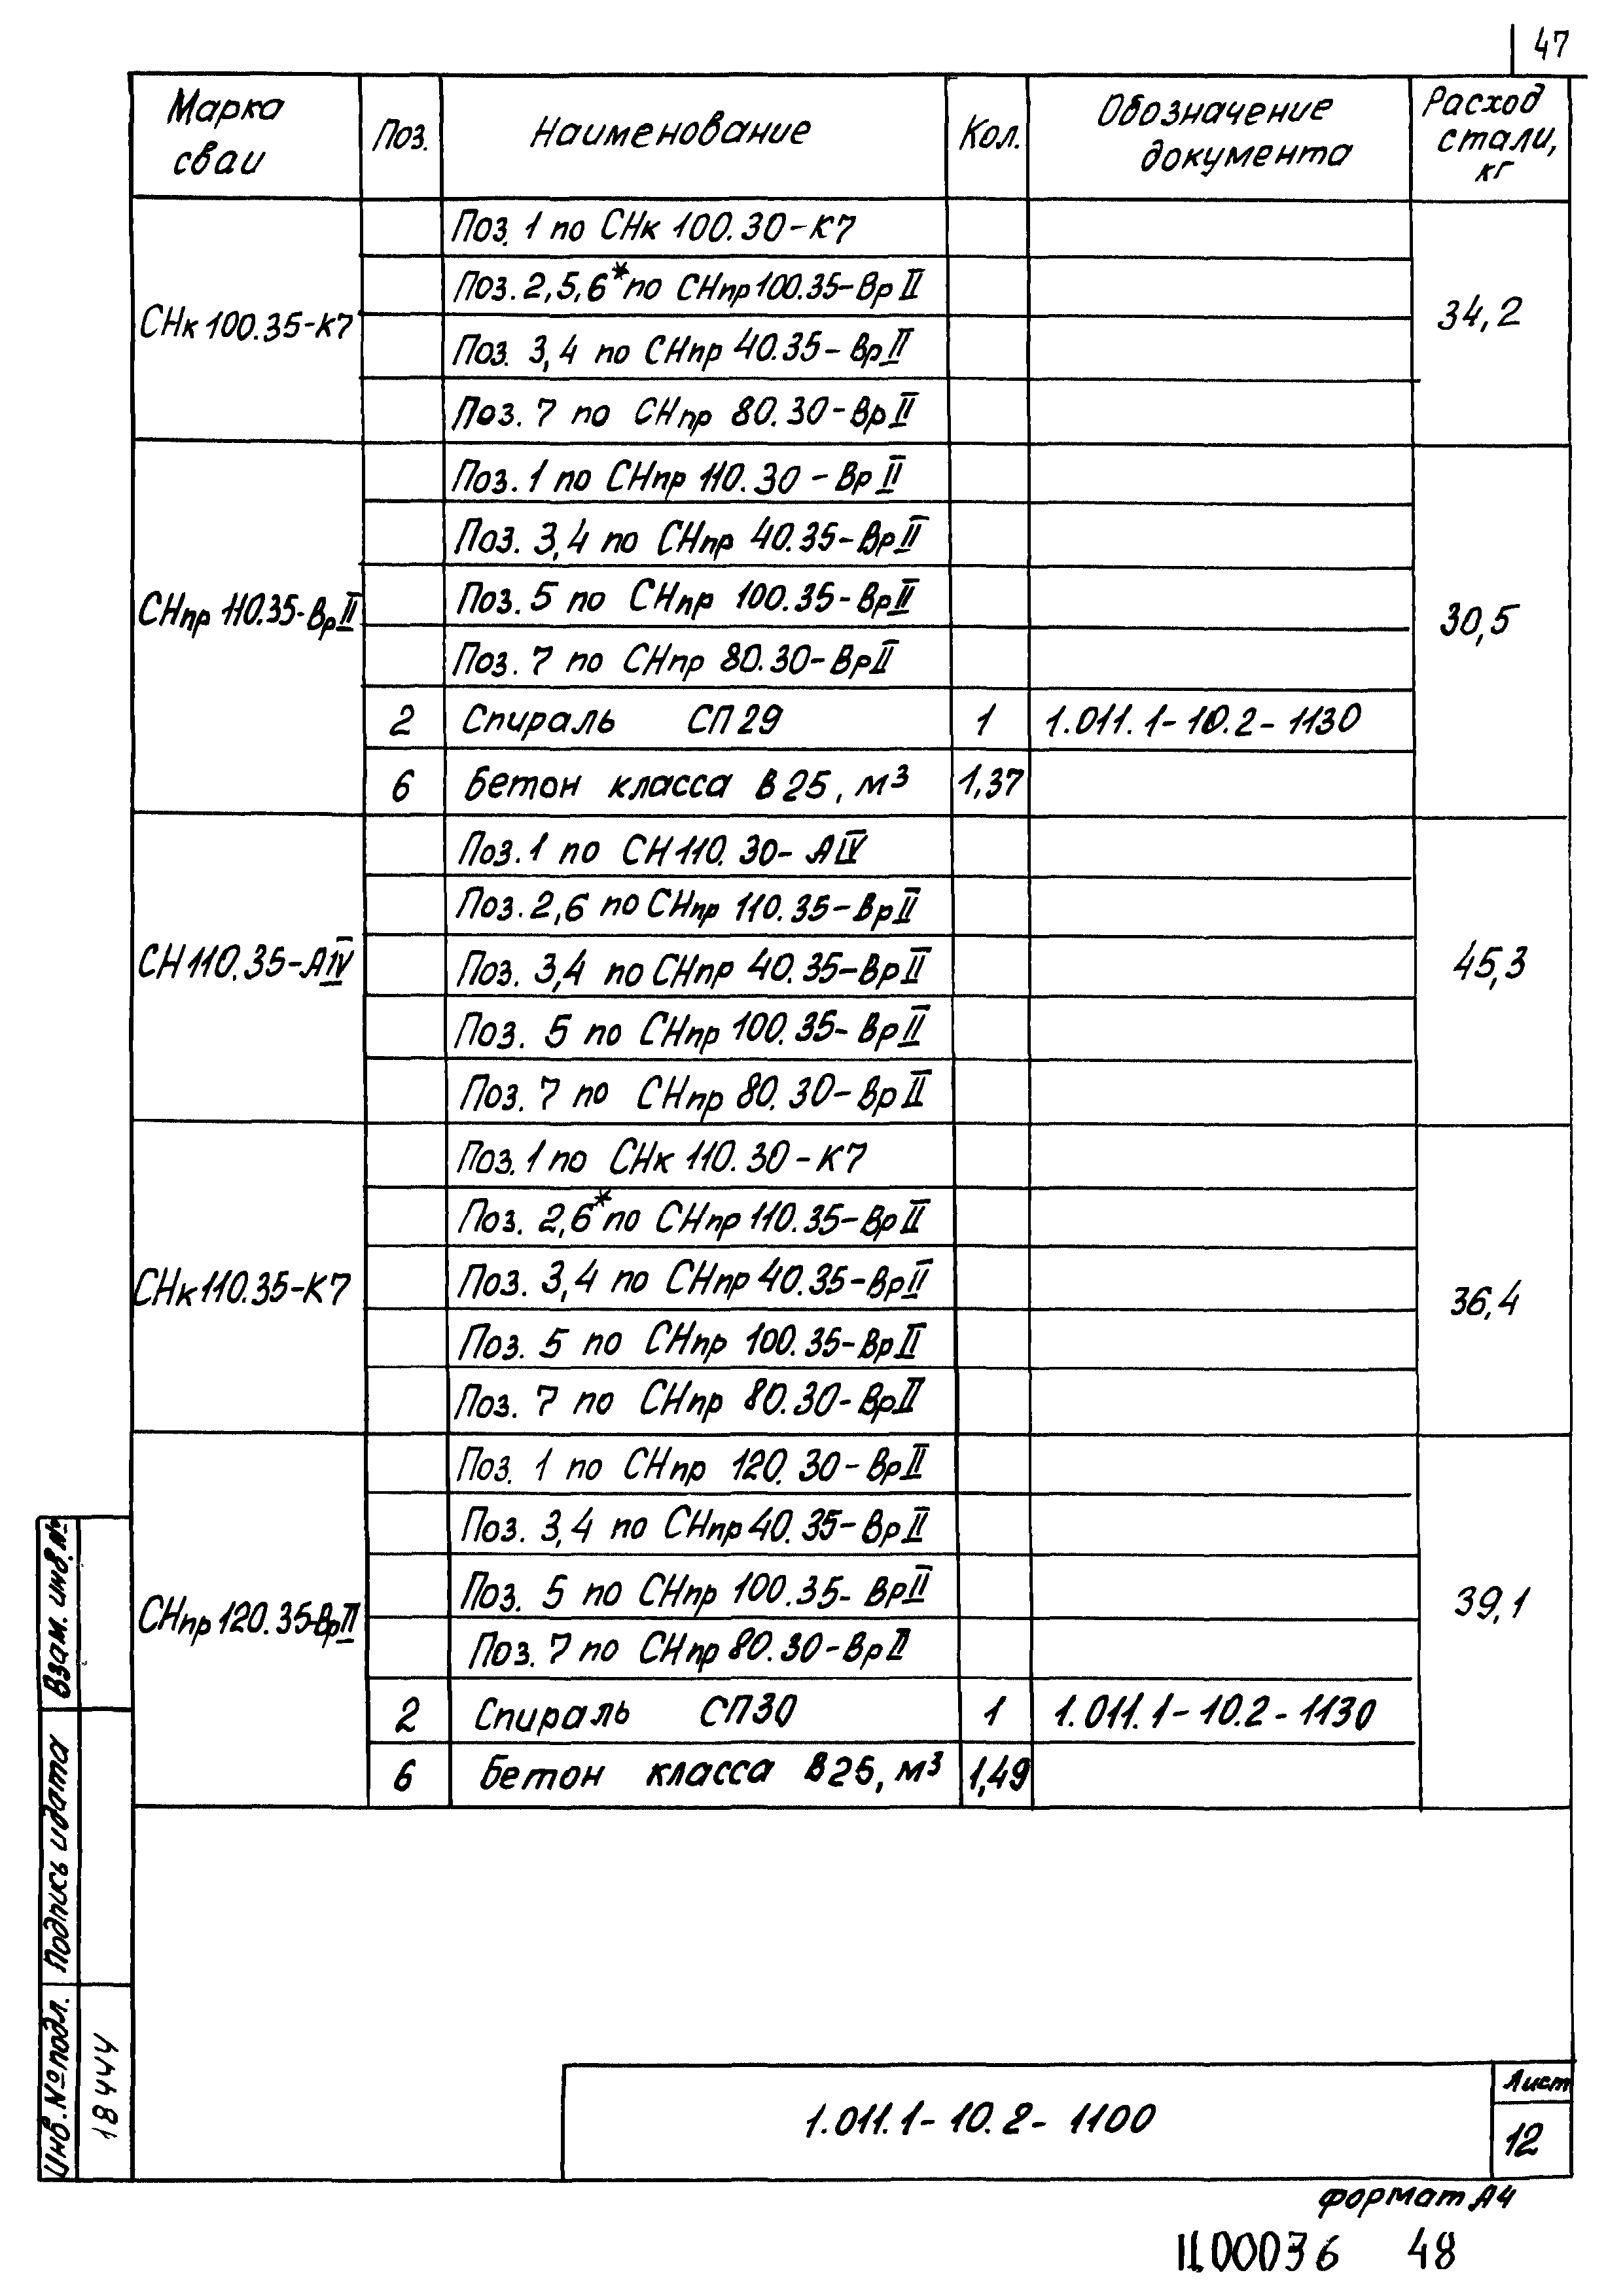 47
Марка сваи | Поз. | Наименование | Кол. | Обозначение документа | Расход стали, кг
СНк 100.35-К7 | | Поз. 1 по СНк 100.30-К7 | | | 34,2
Поз. 2,5,6* по СНпр 100.35-Вр II
Поз. 3,4 по СНпр 40.35-Вр II
Поз. 7 по СНпр 80.30-Вр II
СНпр 110.35-Вр II | | Поз. 1 по СНпр 110.30-Вр II | | | 30,5
Поз. 3,4 по СНпр 40.35-Вр II
Поз. 5 по СНпр 100.35-Вр II
Поз. 7 по СНпр 80.30-Вр II
2 | Спираль СП29 | 1 | 1.011.1-10.2-1130
6 | Бетон класса В25, м³ | 1,37
СН 110.35-А IV | | Поз. 1 по СН 110.30-А IV | | | 45,3
Поз. 2,6 по СНпр 110.35-Вр II
Поз. 3,4 по СНпр 40.35-Вр II
Поз. 5 по СНпр 100.35-Вр II
Поз. 7 по СНпр 80.30-Вр II
СНк 110.35-К7 | | Поз. 1 по СНк 110.30-К7 | | | 36,4
Поз. 2,6* по СНпр 110.35-Вр II
Поз. 3,4 по СНпр 40.35-Вр II
Поз. 5 по СНпр 100.35-Вр II
Поз. 7 по СНпр 80.30-Вр II
СНпр 120.35-Вр II | | Поз. 1 по СНпр 120.30-Вр II | | | 39,1
Поз. 3,4 по СНпр 40.35-Вр II
Поз. 5 по СНпр 100.35-Вр II
Поз. 7 по СНпр 80.30-Вр II
2 | Спираль СП30 | 1 | 1.011.1-10.2-1130
6 | Бетон класса В25, м³ | 1,49
Взам. инв. №
Подпись и дата
Инв. № подл.
18444
1.011.1-10.2-1100
Лист
12
формат А4
Ц00036 48